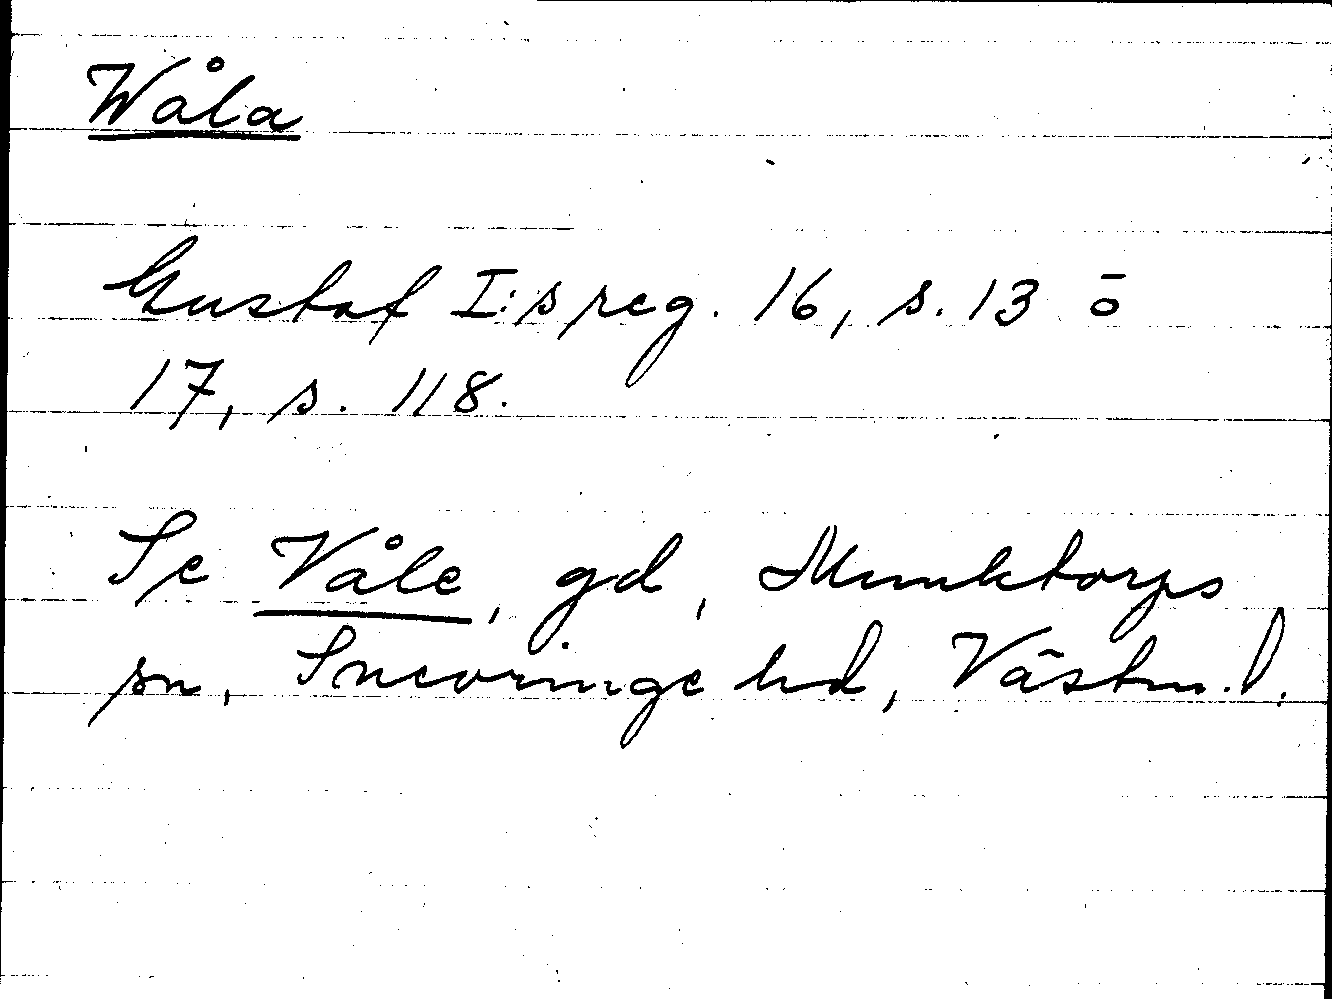 Wåla
Gustaf I:s reg. 16, s. 13 ō
17, s. 118.
Se Våle, gd, Munktorps
sn, Snevringe hd, Västm. l.